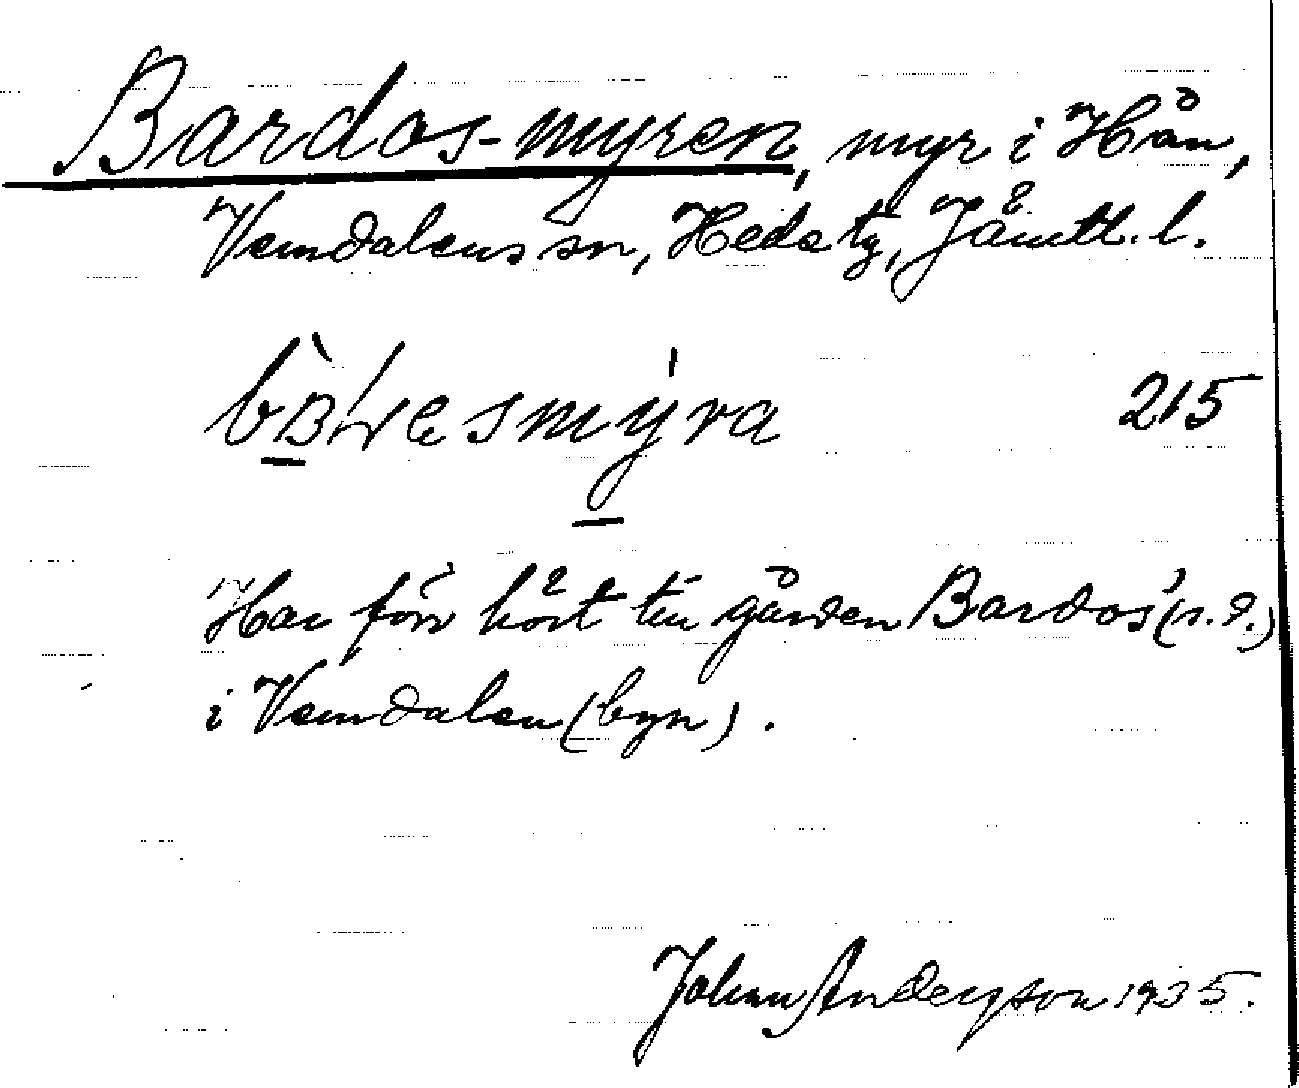 Bardos-myren, myr i Hån,
Vemdalens sn, Heda tg, Jämtl. l.
215
Har förr hört till gården Bardos' (s. d.)
i Vemdalen (byn).
Johan Anderson 1935.